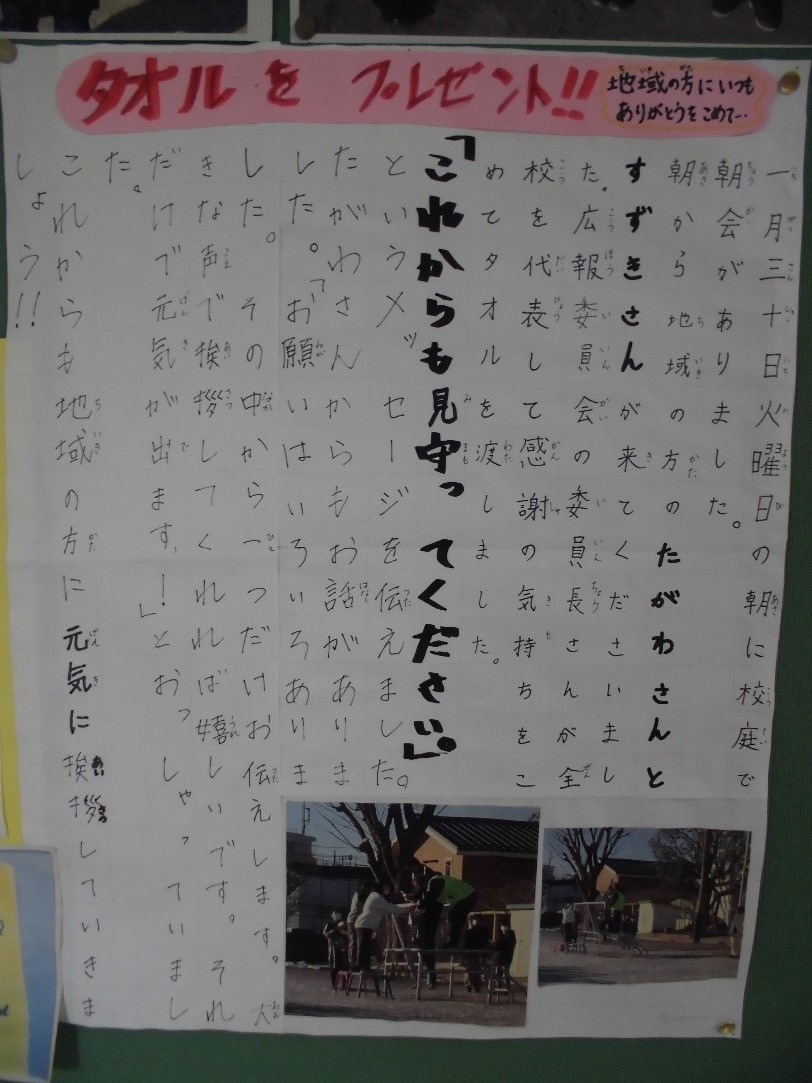 タオルを プレゼント!!
地域の方にいつも
ありがとうをこめて…
一月三十日火曜日の朝に校庭で
朝会がありました。
朝から地域の方のたがわさんと
すずきさんが来てくださいまし
た。広報委員会の委員長さんが全
校を代表して感謝の気持ちをこ
めてタオルを渡しました。
「これからも見守ってください」。
というメッセージを伝えました。
たがわさんからもお話がありま
した。「お願いはいろいろありま
した。その中から一つだけお伝えします。大
きな声で挨拶してくれれば嬉しいです。それ
だけで元気が出ます、!」とおっしゃっていまし
た。
これからも地域の方に元気に挨拶していきま
しょう!!